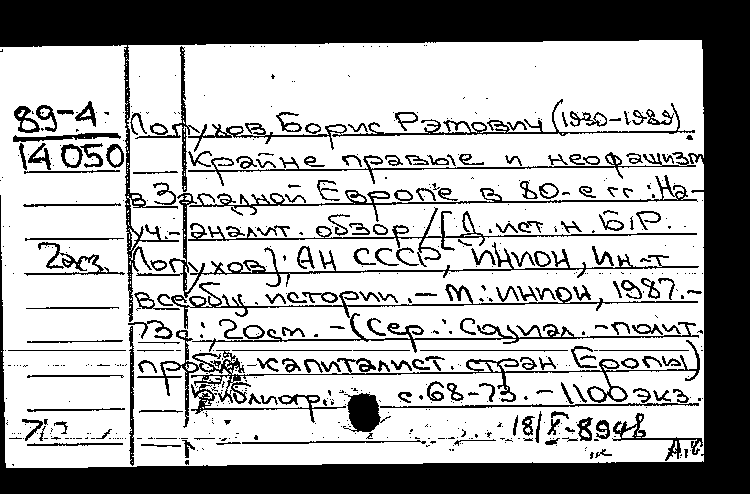 89-4 Лопухов, Борис Рэмович (1930-1989).
14050 Крайне правые и неофашизм
в Западной Европе в 80-е гг.: На-
уч.-аналит. обзор / [Д. ист. н. Б.Р.
2экз. Лопухов]; АН СССР, ИНИОН, Ин-т
всеобщ. истории. - М.: ИНИОН, 1987. -
73с.; 20см. - (Сер.: Социал.-полит.
пробл. капиталист. стран Европы)
Библиогр.: с. 68-73. - 1100 экз.
18/X-89